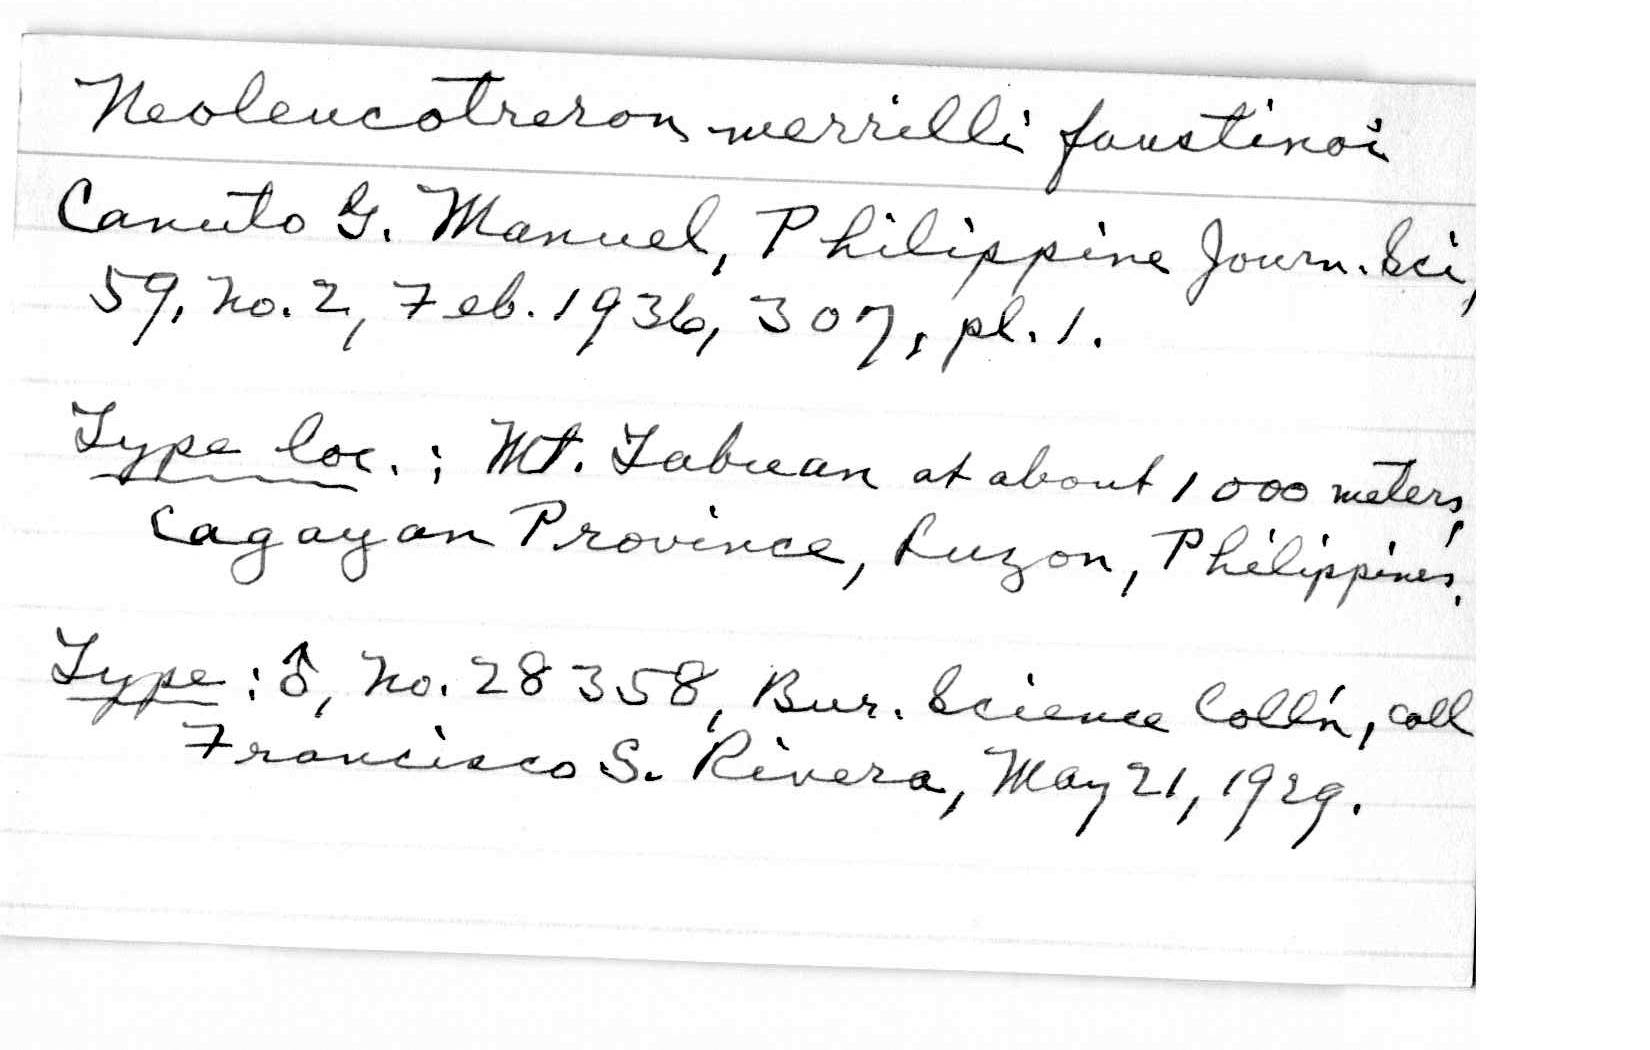 Neoleucotreron merrilli faustinoi
Canuto G. Manuel, Philippine Journ. Sci,
59, No. 2, Feb. 1936, 307, pl. 1.
Type loc.: Mt. Tabuan at about 1000 meters,
Cagayan Province, Luzon, Philippines.
Type: ♂, No. 28358, Bur. Science Coll'n, coll
Francisco S. Rivera, May 21, 1929.